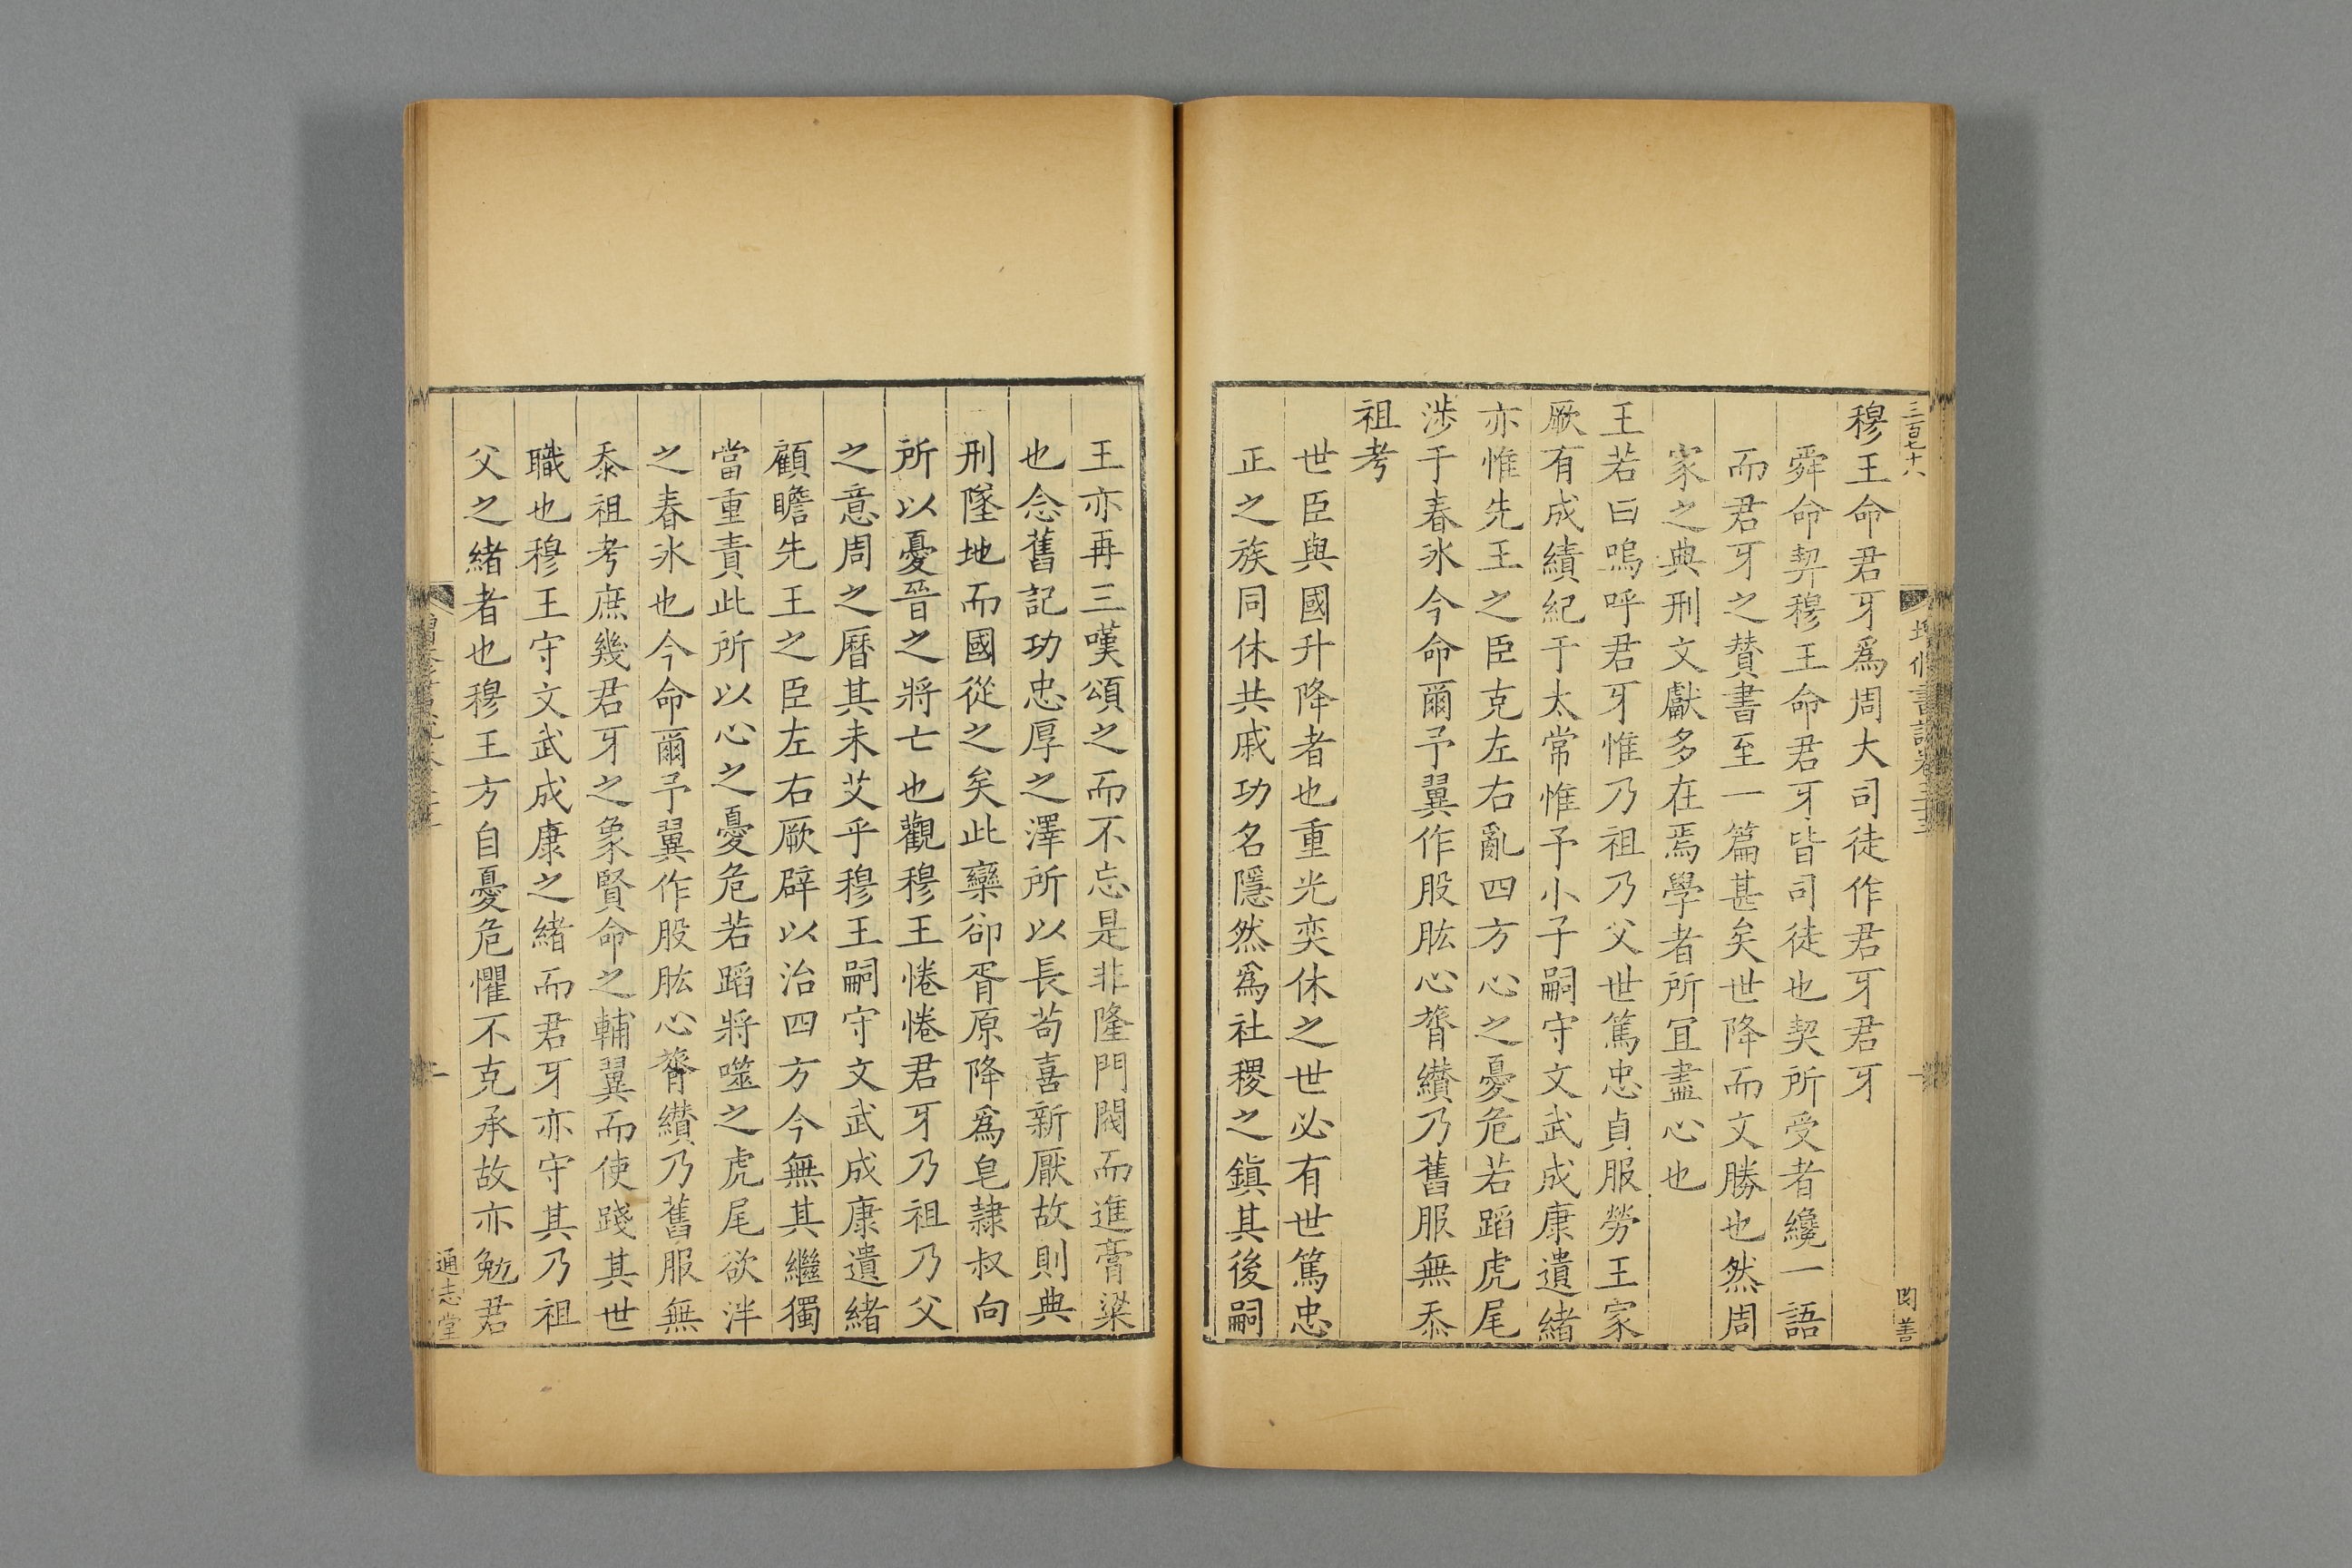 三百七十八
穆王命君牙爲周大司徒作君牙君牙
舜命契穆王命君牙皆司徒也契所受者纔一語
而君牙之贊書至一篇甚矣世降而文勝也然周
家之典刑文獻多在焉學者所宜盡心也
王若曰嗚呼君牙惟乃祖乃父世篤忠貞服勞王家
厥有成績紀于太常惟予小子嗣守文武成康遺緒
亦惟先王之臣克左右亂四方心之憂危若蹈虎尾
涉于春冰今命爾予翼作股肱心膂纘乃舊服無忝
祖考
世臣與國升降者也重光奕休之世必有世篤忠
正之族同休共戚功名隱然爲社稷之鎭其後嗣
王亦再三嘆頌之而不忘是非隆門閥而進膏粱
也念舊記功忠厚之澤所以長苟喜新厭故則典
刑墜地而國從之矣此欒卻胥原降爲皂隷叔向
所以憂晉之將亡也觀穆王惓惓君牙乃祖乃父
之意周之曆其未艾乎穆王嗣守文武成康遺緒
顧瞻先王之臣左右厥辟以治四方今無其繼獨
當重責此所以心之憂危若蹈將噬之虎尾欲泮
之春冰也今命爾予翼作股肱心膂纘乃舊服無
忝祖考庶幾君牙之象賢命之輔翼而使踐其世
職也穆王守文武成康之緒而君牙亦守其乃祖
父之緒者也穆王方自憂危懼不克承故亦勉君
通志堂